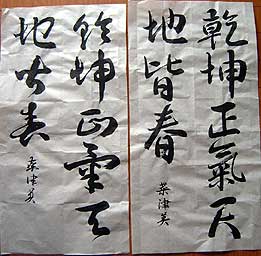 乾坤正氣天
地皆春
葉津英
乾坤正氣天
地皆春
葉津英